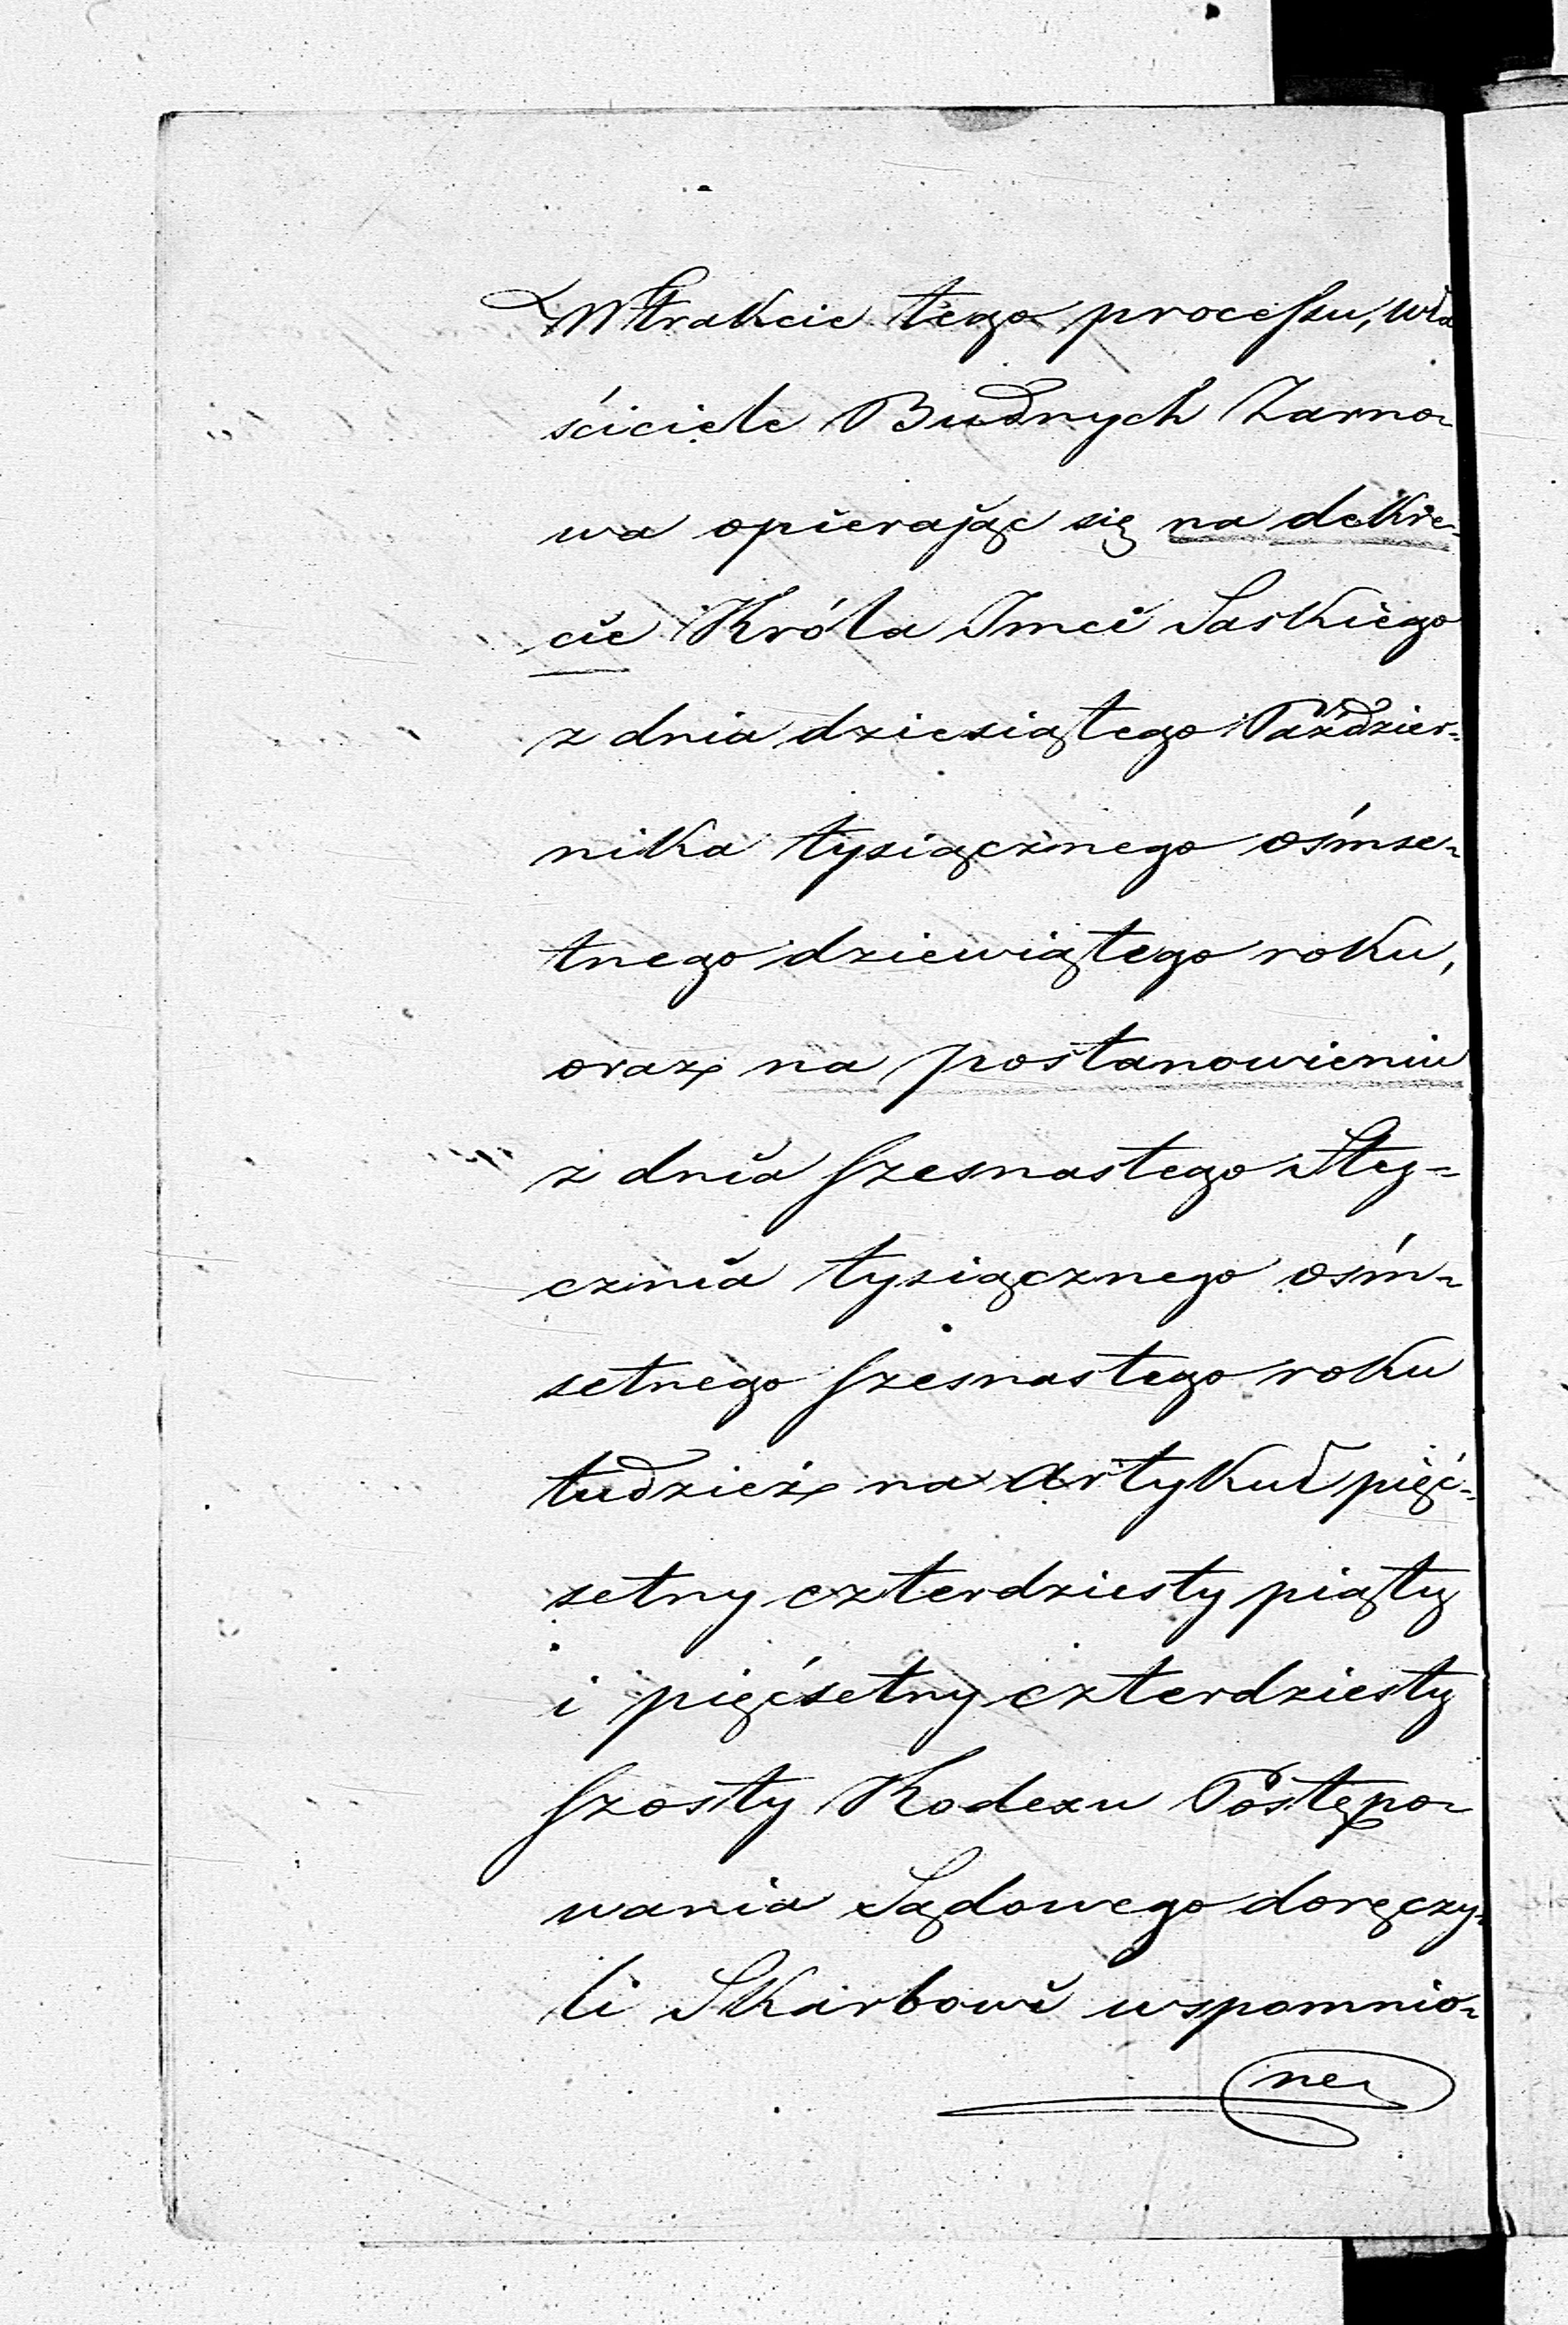 W trakcie tego processu, wła
ściciele Budnych Zarno-
wa opierając się na dekre-
cie Króla Jmci Saskiego
z dnia dziesiątego Paździer-
nika tysiącznego ośmse-
tnego dziewiątego roku,
oraz na postanowieniu
z dnia szesnastego Sty-
cznia tysiącznego ośm-
setnego szesnastego roku
tudzież na Artykuł pięć-
setny czterdziesty piąty
i pięćsetny czterdziesty
szosty Kodexu Postępo-
wania Sądowego doręczy-
li Skarbowi wspomnio-
ne